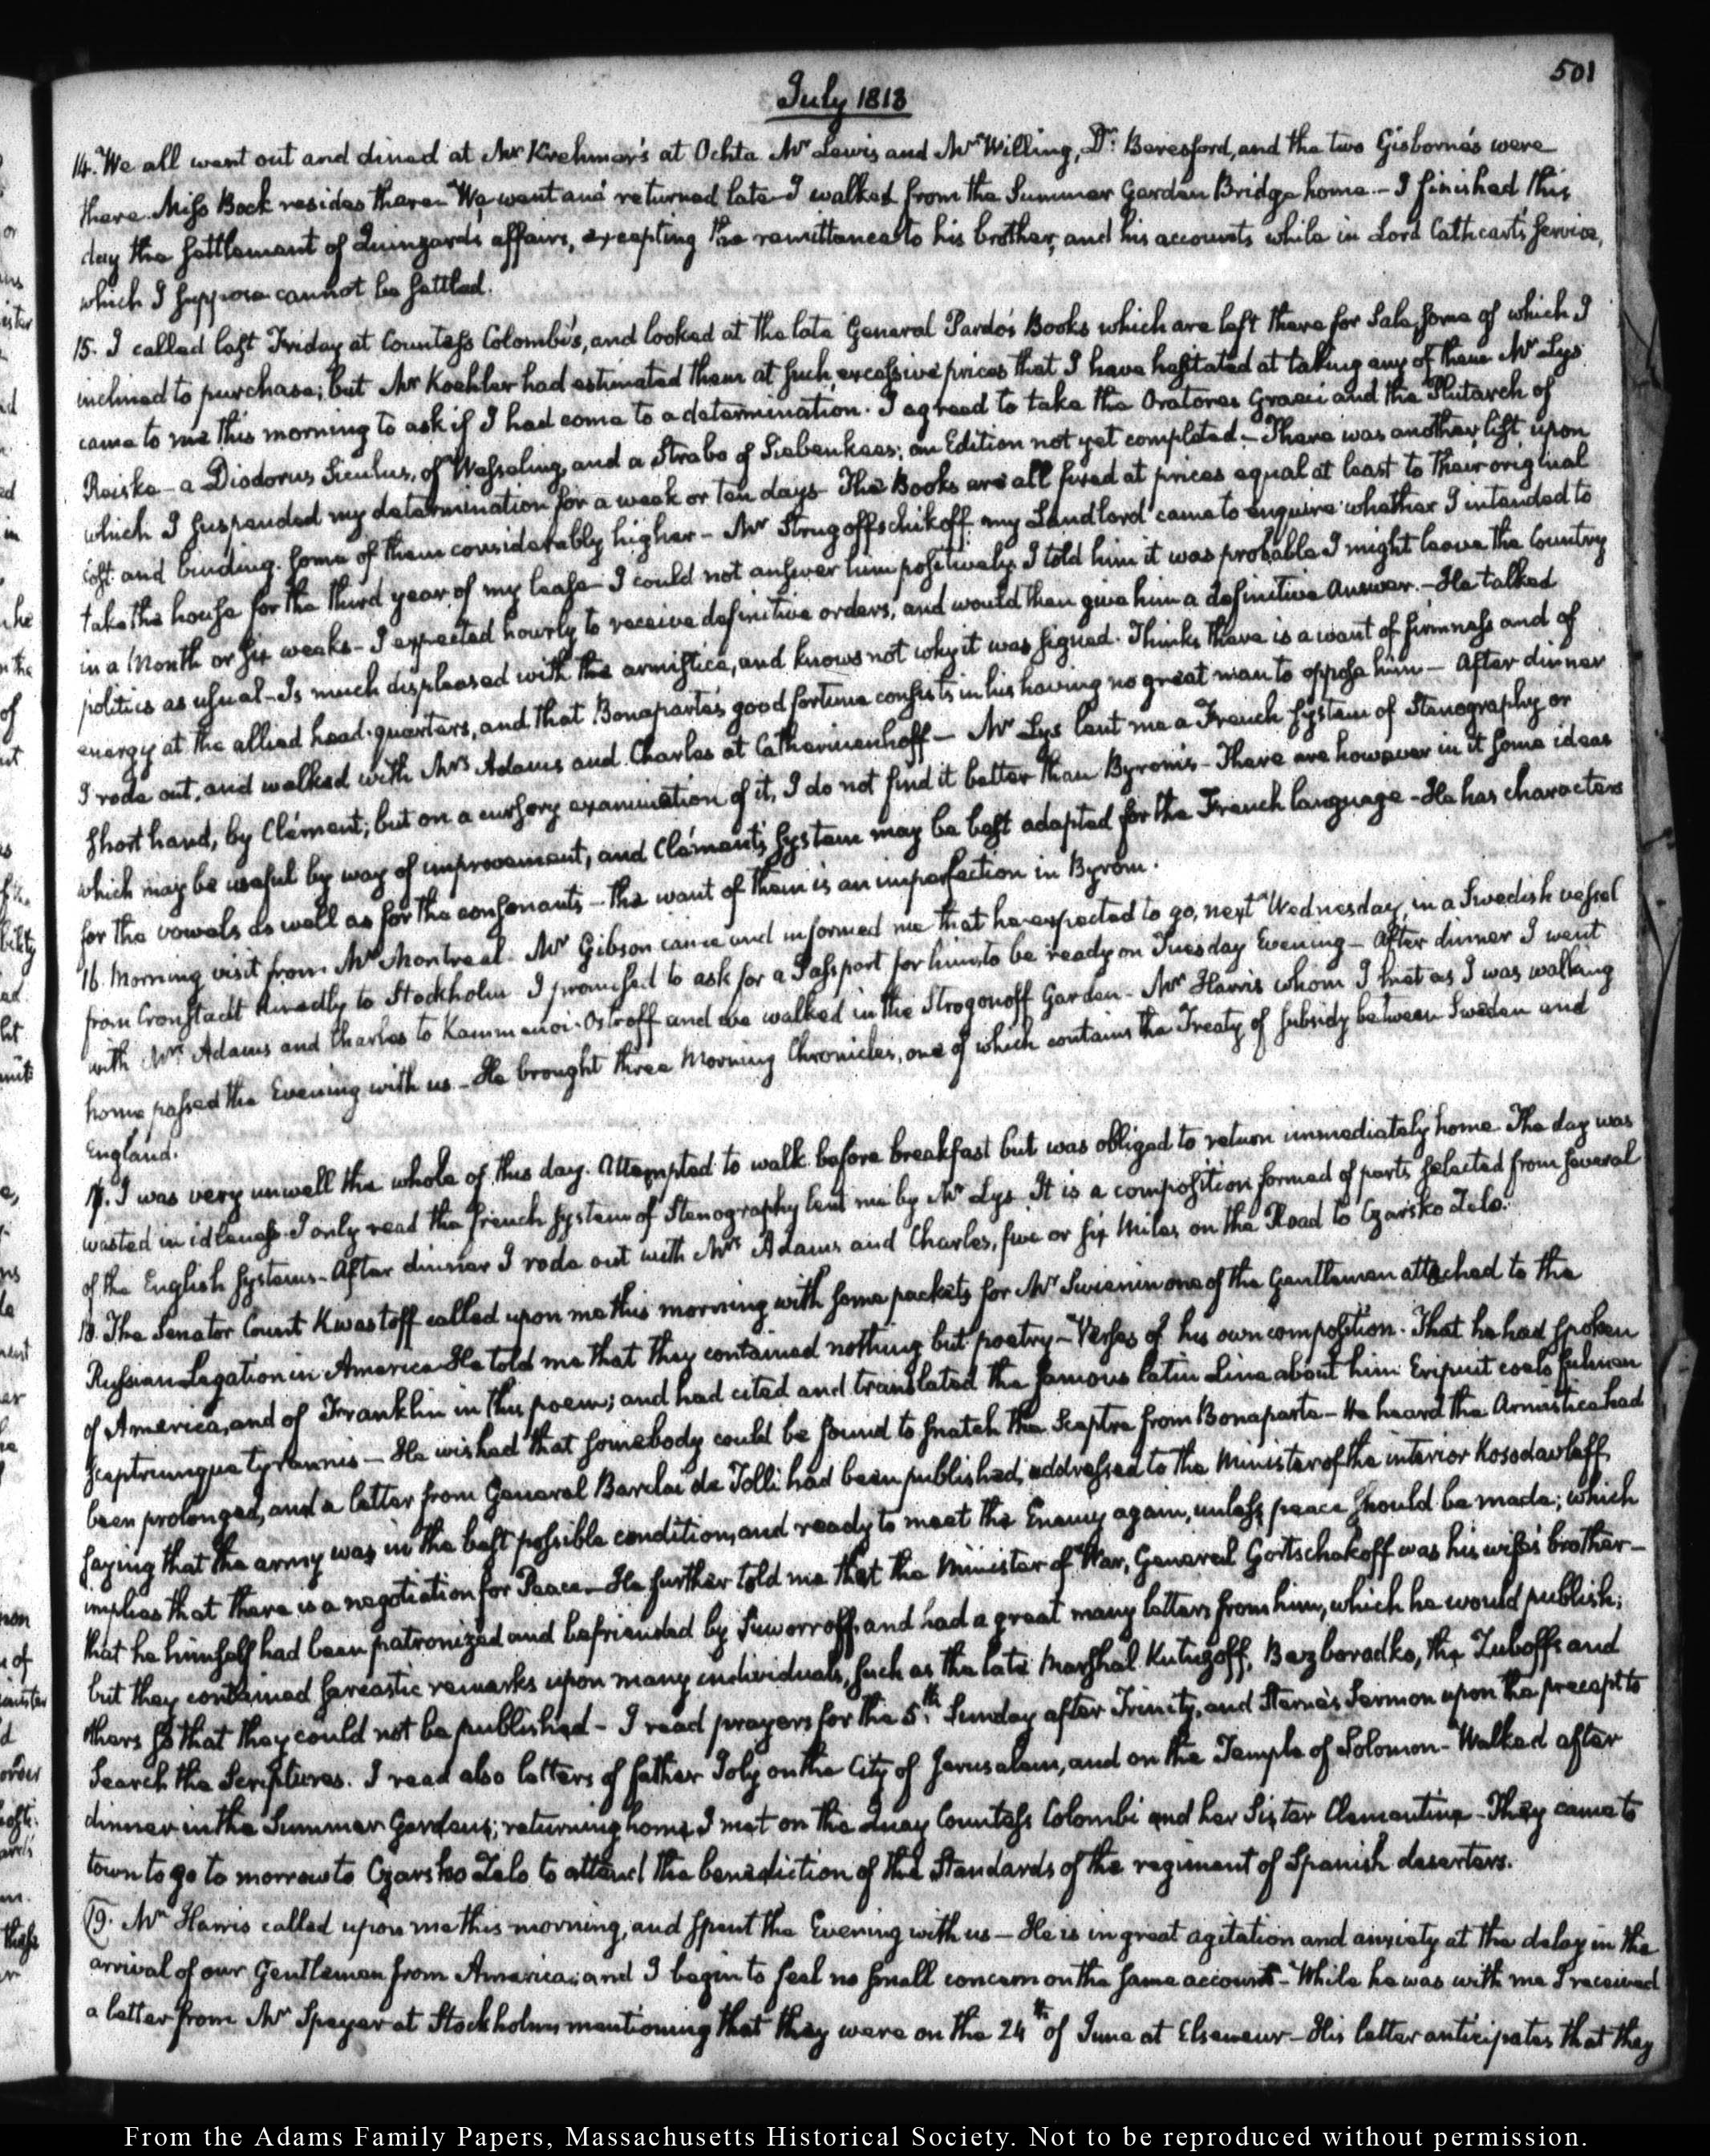 501
July 1813
14. We all went out and dined at Mr Krehmer's at Ochta. Mr Lewis and Mr Willing, Dr: Beresford, and the two Gisborne's were
there. Miss Bock resides there. We went and returned late I walked from the Summer Garden Bridge home. – I finished this
day the settlement of affairs, excepting the remittances to his brother, and his accounts while in Lord Cathcart's service,
which I suppose cannot be settled.
15. I called last Friday at Countess Colombi's, and looked at the late General Pardo's Books which are left there for Sale, some of which I
inclined to purchase; but Mr Koehler had estimated them at such excessive prices that I have hesitated at taking any of them. Mr Lys
came to me this morning to ask if I had come to a determination. I agreed to take the Oratores Graeci and the Plutarch of
Reiske – a Diodorus Siculus, of Wesseling, and a Strabo of Siebenkees; an Edition not yet completed – There was another list upon
which I suspended my determination for a week or ten days – The Books are all fixed at prices equal at least to their original
cost and binding. Some of them considerably higher – Mr Strugoffschikoff my Landlord came to enquire whether I intended to
take the house for the third year of my lease – I could not answer him positively. I told him it was probable I might leave the Country
in a Month or six weeks – I expected hourly to receive definitive orders, and would then give him a definitive Answer. – He talked
politics as usual – Is much displeased with the armistice, and knows not why it was signed. Thinks there is a want of firmness and of
energy at the allied head-quarters, and that Bonaparte's good fortune consists in his having no great man to oppose him – After dinner
I rode out, and walked with Mrs Adams and Charles at Catherinenhoff – Mr Lys lent me a French system of Stenography or
short hand, by Clément; but on a cursory examination of it, I do not find it better than Byrom's – There are however in it some ideas
which may be useful by way of improvement, and Clément's system may be best adapted for the French language – He has characters
for the vowels as well as for the consonants – the want of them is an imperfection in Byrom.
16. Morning visit from Mr Montreal. Mr Gibson came and informed me that he expected to go, next Wednesday, in a Swedish vessel
from Cronstadt directly to Stockholm I promised to ask for a Passport for him to be ready on Tuesday Evening – After dinner I went
with Mrs Adams and Charles to Kammenoi-Ostroff and we walked in the Strogonoff Garden – Mr Harris whom I met as I was walking
home passed the Evening with us – He brought three Morning Chronicles, one of which contains the Treaty of subsidy between Sweden and
England.
17. I was very unwell the whole of this day. Attempted to walk before breakfast but was obliged to return immediately home. The day was
wasted in idleness. I only read the french system of Stenography lent me by Mr Lys. It is a composition formed of parts selected from several
of the English systems – After dinner I rode out with Mrs Adams and Charles, five or six Miles on the Road to Czarsko Zelo.
18. The Senator Count Kwastoff called upon me this morning with some packets for Mr Swienin one of the Gentlemen attached to the
Russian Legation in America He told me that they contained nothing but poetry – Verses of his own composition. That he had spoken
of America, and of Franklin in this poem; and had cited and translated the famous latin Line about him Eripuit coelo fulmen
sceptrumque tyrannis – He wished that somebody could be found to snatch the Sceptre from Bonaparte – He heard the Armistice had
been prolonged, and a letter from General Barclai de Tolli had been published, addressed to the Minister of the interior Kosodavleff,
saying that the army was in the best possible condition, and ready to meet the Enemy again, unless peace should be made; which
implies that there is a negotiation for Peace. – He further told me that the Minister of War, General Gortschakoff was his wife's brother –
that he himself had been patronized and befriended by Suworroff, and had a great many letters from him, which he would publish;
but they contained sarcastic remarks upon many individuals, such as the late Marshal Kutuzoff, Bezborodko, the Zuboffs and
others so that they could not be published – I read prayers for the 5th Sunday after Trinity, and Sterne's Sermon upon the precept to
Search the Scriptures. I read also letters of father Joly on the City of Jerusalem, and on the Temple of Solomon – Walked after
dinner in the Summer Gardens; returning home, I met on the Quay Countess Colombi and her Sister Clementine – They came to
town to go to morrow to Czarsko Zelo to attend the benediction of the Standards of the regiment of Spanish deserters.
19. Mr Harris called upon me this morning, and spent the Evening with us – He is in great agitation and anxiety at the delay in the
arrival of our Gentlemen from America; and I begin to feel no small concern on the same account – While he was with me I received
a letter from Mr Speyer at Stockholm mentioning that they were on the 24th of June at Elseneur – His letter anticipates that they
From the Adams Family Papers, Massachusetts Historical Society. Not to be reproduced without permission.